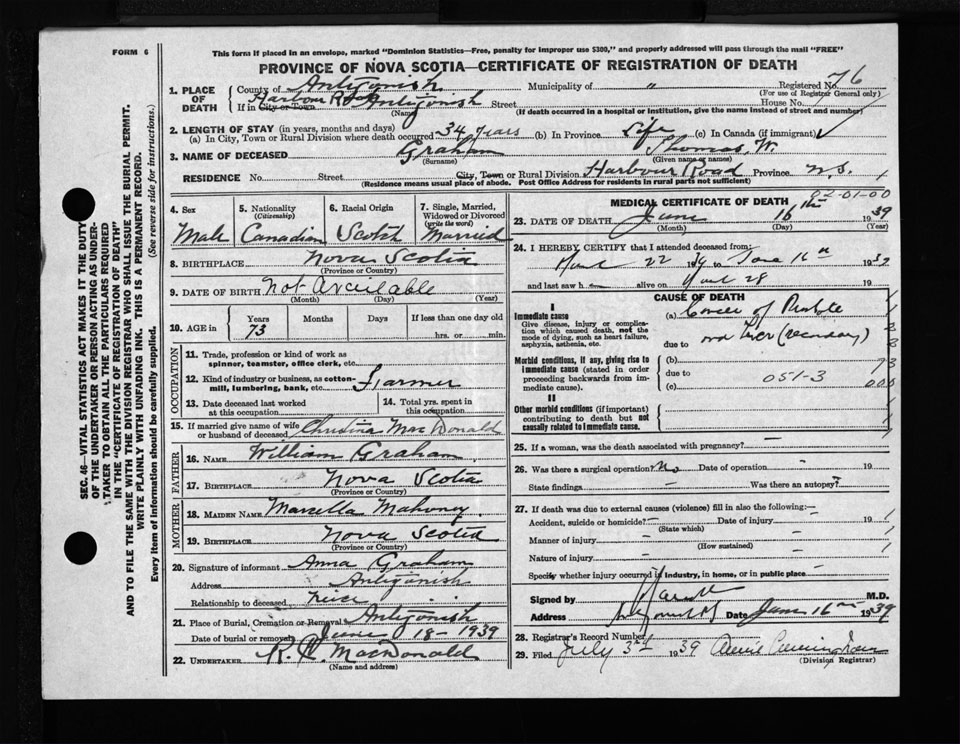 FORM 6
This form if placed in an envelope, marked "Dominion Statistics—Free, penalty for improper use $300," and properly addressed will pass through the mail "FREE"
PROVINCE OF NOVA SCOTIA—CERTIFICATE OF REGISTRATION OF DEATH
SEC. 46—VITAL STATISTICS ACT MAKES IT THE DUTY
OF THE UNDERTAKER OR PERSON ACTING AS UNDER-
TAKER TO OBTAIN ALL THE PARTICULARS REQUIRED
IN THE "CERTIFICATE OF REGISTRATION OF DEATH"
AND TO FILE THE SAME WITH THE DIVISION REGISTRAR WHO SHALL ISSUE THE BURIAL PERMIT.
WRITE PLAINLY WITH UNFADING INK. THIS IS A PERMANENT RECORD.
Every item of information should be carefully supplied. (See reverse side for instructions.)
1. PLACE OF DEATH
County of Antigonish Municipality of " Registered No. 76
(For use of Registrar General only)
Harbour Road
If in City or Town Antigonish Street House No.
(Name) (If death occurred in a hospital or institution, give the name instead of street and number)
2. LENGTH OF STAY (in years, months and days)
(a) In City, Town or Rural Division where death occurred 34 years (b) In Province Life (c) In Canada (if immigrant)
3. NAME OF DECEASED Graham Thomas, W.
(Surname) (Given name or names)
RESIDENCE No. Street City, Town or Rural Division Harbour Road Province N.S.
(Residence means usual place of abode. Post Office Address for residents in rural parts not sufficient)
4. Sex
Male
5. Nationality
(Citizenship)
Canadian
6. Racial Origin
Scotch
7. Single, Married,
Widowed or Divorced
(write the word)
Married
8. BIRTHPLACE Nova Scotia
(Province or Country)
9. DATE OF BIRTH Not Available
(Month) (Day) (Year)
10. AGE in
Years Months Days If less than one day old
73 hrs. or min.
OCCUPATION
11. Trade, profession or kind of work as
spinner, teamster, office clerk, etc.
12. Kind of industry or business, as cotton-
mill, lumbering, bank, etc. Farmer
13. Date deceased last worked
at this occupation
14. Total yrs. spent in
this occupation
15. If married give name of wife
or husband of deceased Christina MacDonald
FATHER
16. Name William Graham
17. Birthplace Nova Scotia
(Province or Country)
MOTHER
18. Maiden Name Marcella Mahoney
19. Birthplace Nova Scotia
(Province or Country)
20. Signature of informant Anna Graham
Address Antigonish
Relationship to deceased neice
21. Place of Burial, Cremation or Removal Antigonish
Date of burial or removal June 18-1939
22. UNDERTAKER R. MacDonald
(Name and address)
02-01-00
MEDICAL CERTIFICATE OF DEATH
23. DATE OF DEATH June 16th 1939
(Month) (Day) (Year)
24. I HEREBY CERTIFY that I attended deceased from:
22 19 to June 16th 1939
and last saw h alive on 28 19
CAUSE OF DEATH
I
Immediate cause
Give disease, injury or complica-
tion which caused death, not the
mode of dying, such as heart failure,
asphyxia, asthenia, etc.
(a) Cancer of
due to
Morbid conditions, if any, giving rise to
immediate cause (stated in order
proceeding backwards from im-
mediate cause).
(b)
due to
(c) 051-3
II
Other morbid conditions (if important)
contributing to death but not
causally related to immediate cause.
25. If a woman, was the death associated with pregnancy? —
26. Was there a surgical operation? No Date of operation — 19
State findings — Was there an autopsy?
27. If death was due to external causes (violence) fill in also the following:—
Accident, suicide or homicide? — Date of injury — 19
(State which)
Manner of injury —
(How sustained)
Nature of injury —
Specify whether injury occurred in industry, in home, or in public place —
Signed by M.D.
Address Date June 16th 1939
28. Registrar's Record Number
29. Filed July 3rd 1939 Cunningham
(Division Registrar)